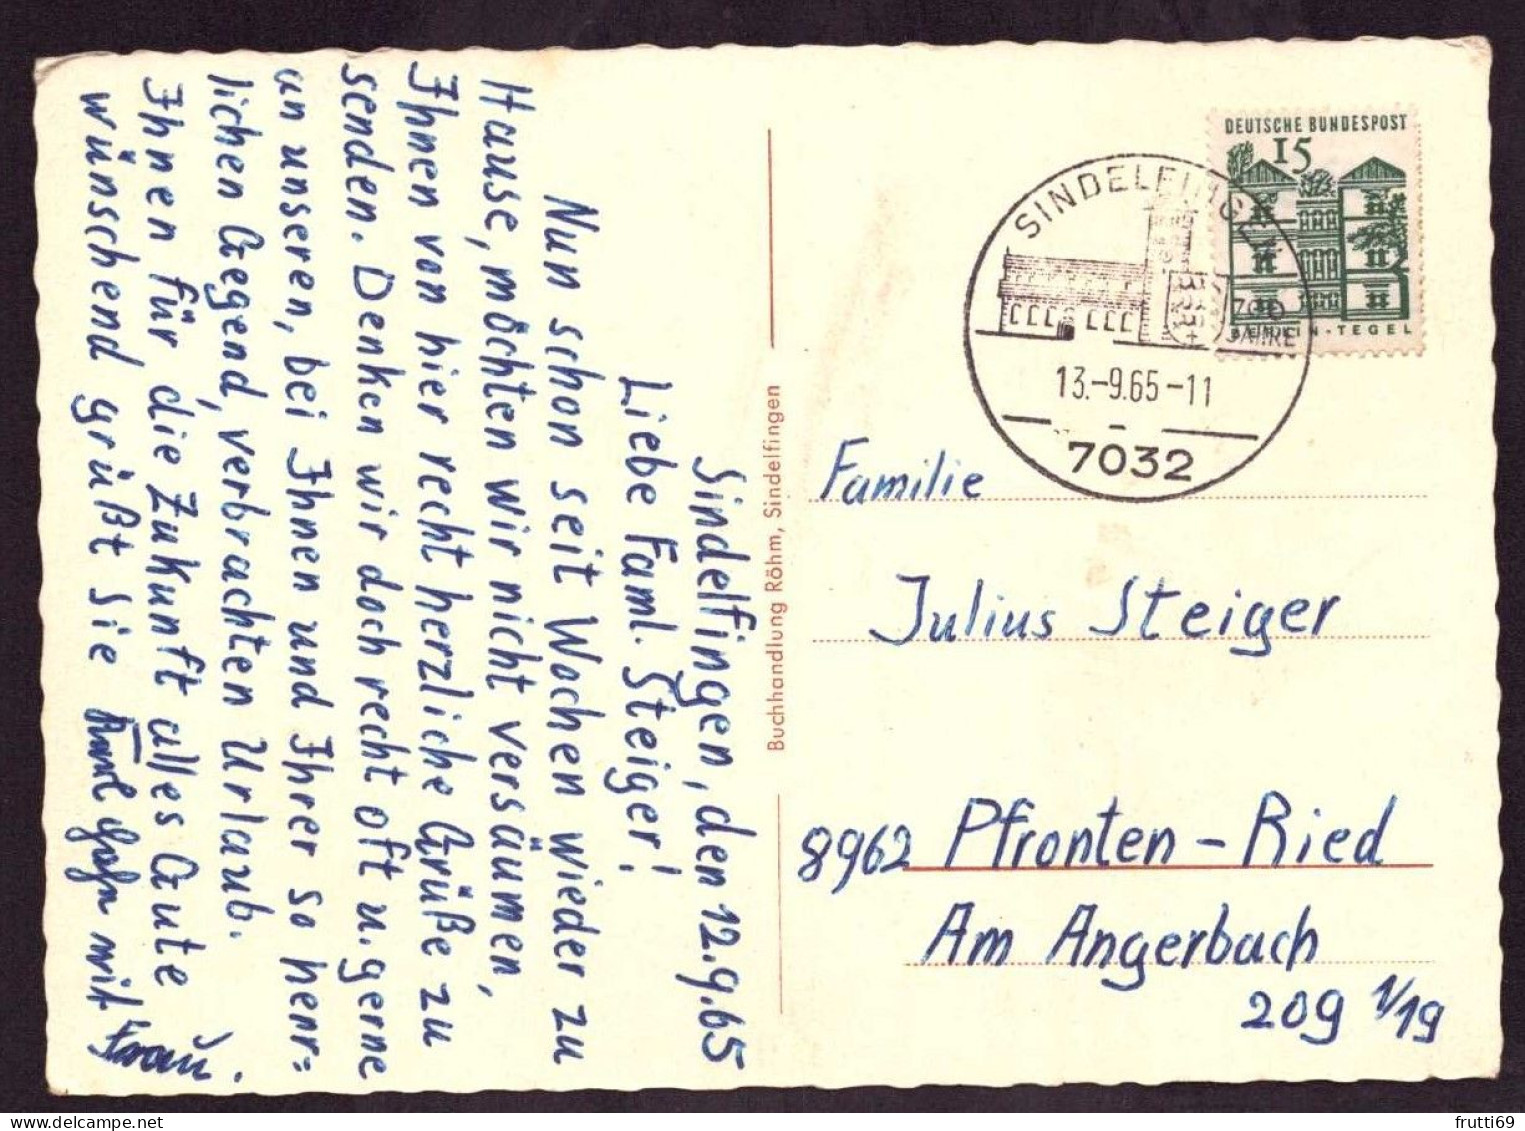 Sindelfingen, den 12.9.65
Liebe Faml. Steiger!
Nun schon seit Wochen wieder zu
Hause, möchten wir nicht versäumen,
Ihnen von hier recht herzliche Grüße zu
senden. Denken wir doch recht oft u. gerne
an unseren, bei Ihnen und Ihrer so herr=
lichen Gegend, verbrachten Urlaub.
Ihnen für die Zukunft alles Gute
wünschend grüßt Sie
mit Frau.
Buchhandlung Röhm, Sindelfingen
DEUTSCHE BUNDESPOST
15
BERLIN-TEGEL
SINDELFINGEN
700
JAHRE
13.-9.65-11
7032
Familie
Julius Steiger
8962 Pfronten-Ried
Am Angerbach
209 1/19
frutti69